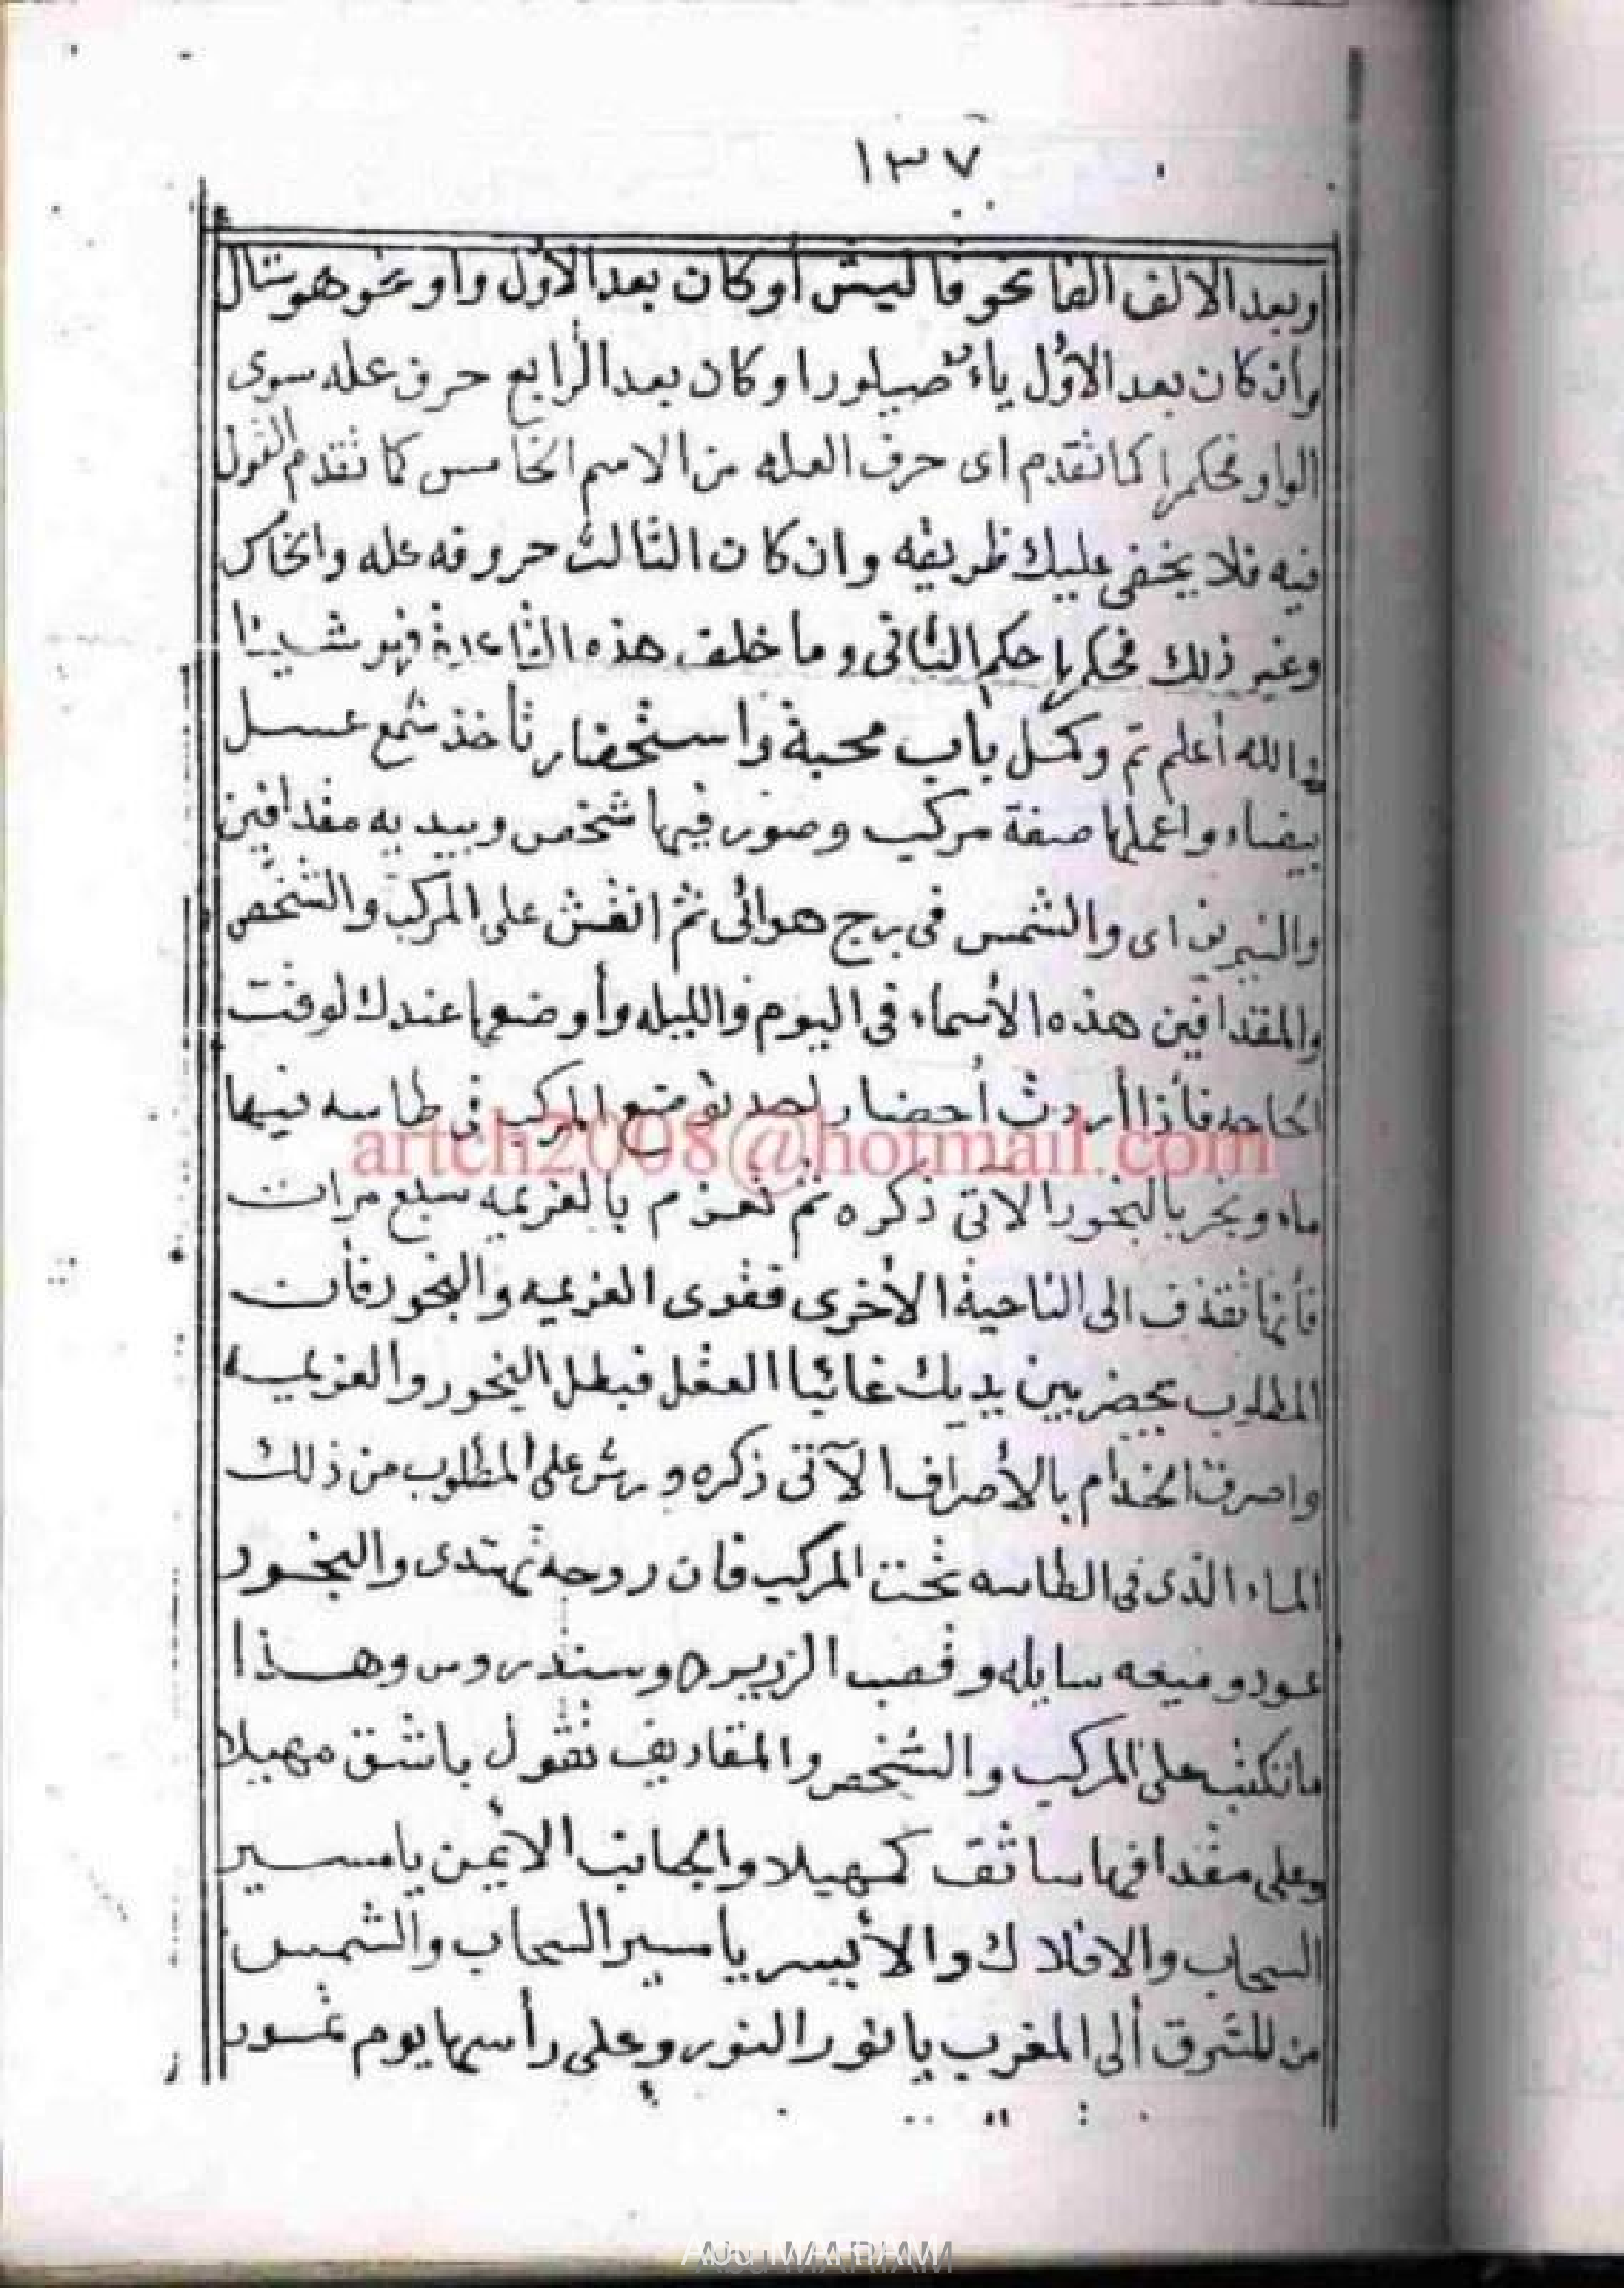 ١٣٧
وبعد الالف الفا نحو فاليش أو كان بعد الأول واو نحو هوستال
وان كان بعد الأول ياء صيلورا وكان بعد الرابع حرف عله سوى
الواو فحكمها كما تقدم اى حرف العله من الاسم الخامس كما تقدم القول
فيه فلا يخفى عليك طريقه وان كان الثالث حروفه عله
وغير ذلك فحكمها حكم الثانى وما خلف هذه القاعدة فهو
والله أعلم تم وكمل باب محبة واستحضار تأخذ شمع عسل
بيضاء واعملها صفة مركب وصور فيها شخص وبيديه مقدافين
والنيرين اى والشمس فى برج هوائى ثم انقش على المركب والشخص
والمقدافين هذه الأسماء فى اليوم والليله وأوضعها عندك لوقت
الحاجه فأذا أردت أحضار احد توضع المركب فى طاسه فيها
ماء ويبخر بالبخور الآتى ذكره ثم تعزم بالعزيمه سبع مرات
فأنها تقذف الى الناحية الأخرى فقوى العزيمه والبخور فأن
المطلوب يحضر بين يديك غائبا العقل فبطل البخور والعزيمه
واصرف الخدام بالأصراف الآتى ذكره ورش على المطلوب من ذلك
الماء الذى فى الطاسه تحت المركب فان روحه تهتدى والبخور
عود وميعه سايله وقصب الزريره وسندروس وهذا
ما تكتب على المركب والشخص والمقاديف تقول ياشق مهيلا
وعلى مقدافها ساتقف كمهيلا والجانب الايمن يا مسير
السحاب والافلاك والأيسر يا مسير السحاب والشمس
من للشرق ألى المغرب يا نور النور وعلى رأسها يوم تمور
artch2008@hotmail.com
Abu MARIAM